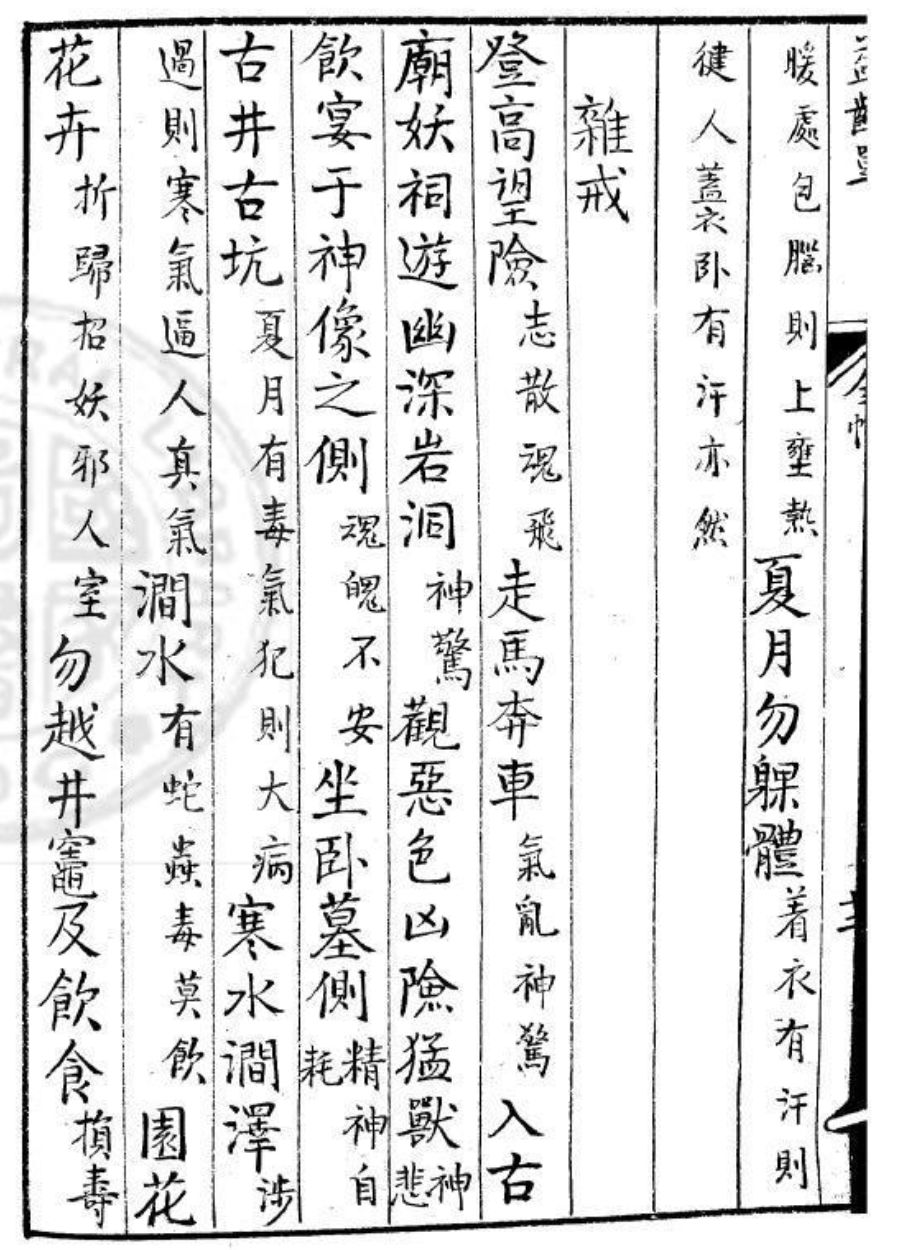 暖處包腦則上壅熱夏月勿躶體着衣有汗則
揵人蓋衣卧有汗亦然
雜戒
登高望險志散魂飛走馬奔車氣亂神驚入古
廟妖祠遊幽深岩洞神驚觀惡色凶險猛獸神悲
飲宴于神像之側魂魄不安坐卧墓側精神自耗
古井古坑夏月有毒氣犯則大病寒水澗澤涉
過則寒氣逼人真氣澗水有蛇蟲毒莫飲園花
花卉折歸招妖邪人室勿越井竈及飲食損壽